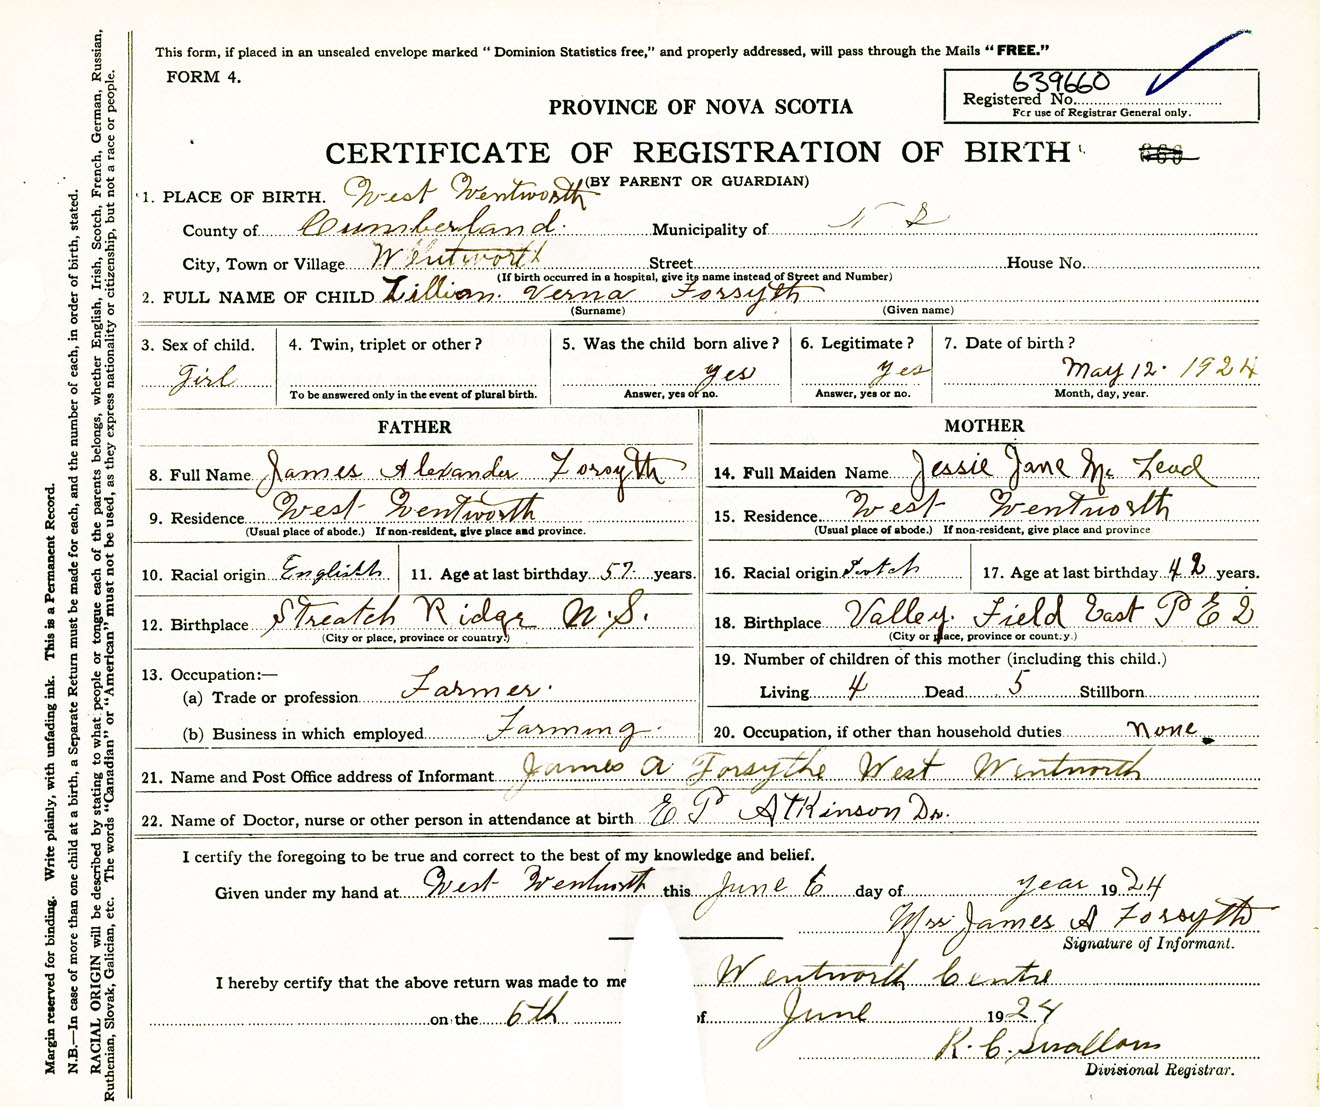 This form, if placed in an unsealed envelope marked "Dominion Statistics free," and properly addressed, will pass through the Mails "FREE."
FORM 4.
639660
Registered No.
For use of Registrar General only.
PROVINCE OF NOVA SCOTIA
CERTIFICATE OF REGISTRATION OF BIRTH
(BY PARENT OR GUARDIAN)
1. PLACE OF BIRTH. West Wentworth
County of Cumberland. Municipality of N S
City, Town or Village Wentworth Street House No.
(If birth occurred in a hospital, give its name instead of Street and Number)
2. FULL NAME OF CHILD Lillian Verna Forsyth
(Surname) (Given name)
3. Sex of child. 4. Twin, triplet or other? 5. Was the child born alive? 6. Legitimate? 7. Date of birth?
Girl yes yes May 12. 1924
To be answered only in the event of plural birth. Answer, yes or no. Answer, yes or no. Month, day, year.
FATHER
8. Full Name James Alexander Forsyth
9. Residence West Wentworth
(Usual place of abode.) If non-resident, give place and province.
10. Racial origin English 11. Age at last birthday 57. years.
12. Birthplace Streatch Ridge N.S.
(City or place, province or country)
13. Occupation:—
(a) Trade or profession Farmer.
(b) Business in which employed Farming.
MOTHER
14. Full Maiden Name Jessie Jane Mc Leod
15. Residence West Wentworth
(Usual place of abode.) If non-resident, give place and province
16. Racial origin Scotch 17. Age at last birthday 42 years.
18. Birthplace Valley. Field East P E I
(City or place, province or county.)
19. Number of children of this mother (including this child.)
Living 4 Dead 5 Stillborn
20. Occupation, if other than household duties None
21. Name and Post Office address of Informant James A Forsythe West Wentworth
22. Name of Doctor, nurse or other person in attendance at birth E P Atkinson Dr.
I certify the foregoing to be true and correct to the best of my knowledge and belief.
Given under my hand at West Wentworth this June 6 day of year 1924
Mrs James A Forsyth
Signature of Informant.
I hereby certify that the above return was made to me Wentworth Centre
on the 6th of June 1924
K. C. Swallow
Divisional Registrar.
Margin reserved for binding. Write plainly, with unfading ink. This is a Permanent Record.
N.B.—In case of more than one child at a birth, a Separate Return must be made for each, and the number of each, in order of birth, stated.
RACIAL ORIGIN will be described by stating to what people or tongue each of the parents belongs, whether English, Irish, Scotch, French, German, Russian,
Ruthenian, Slovak, Galician, etc. The words "Canadian" or "American" must not be used, as they express nationality or citizenship, but not a race or people.